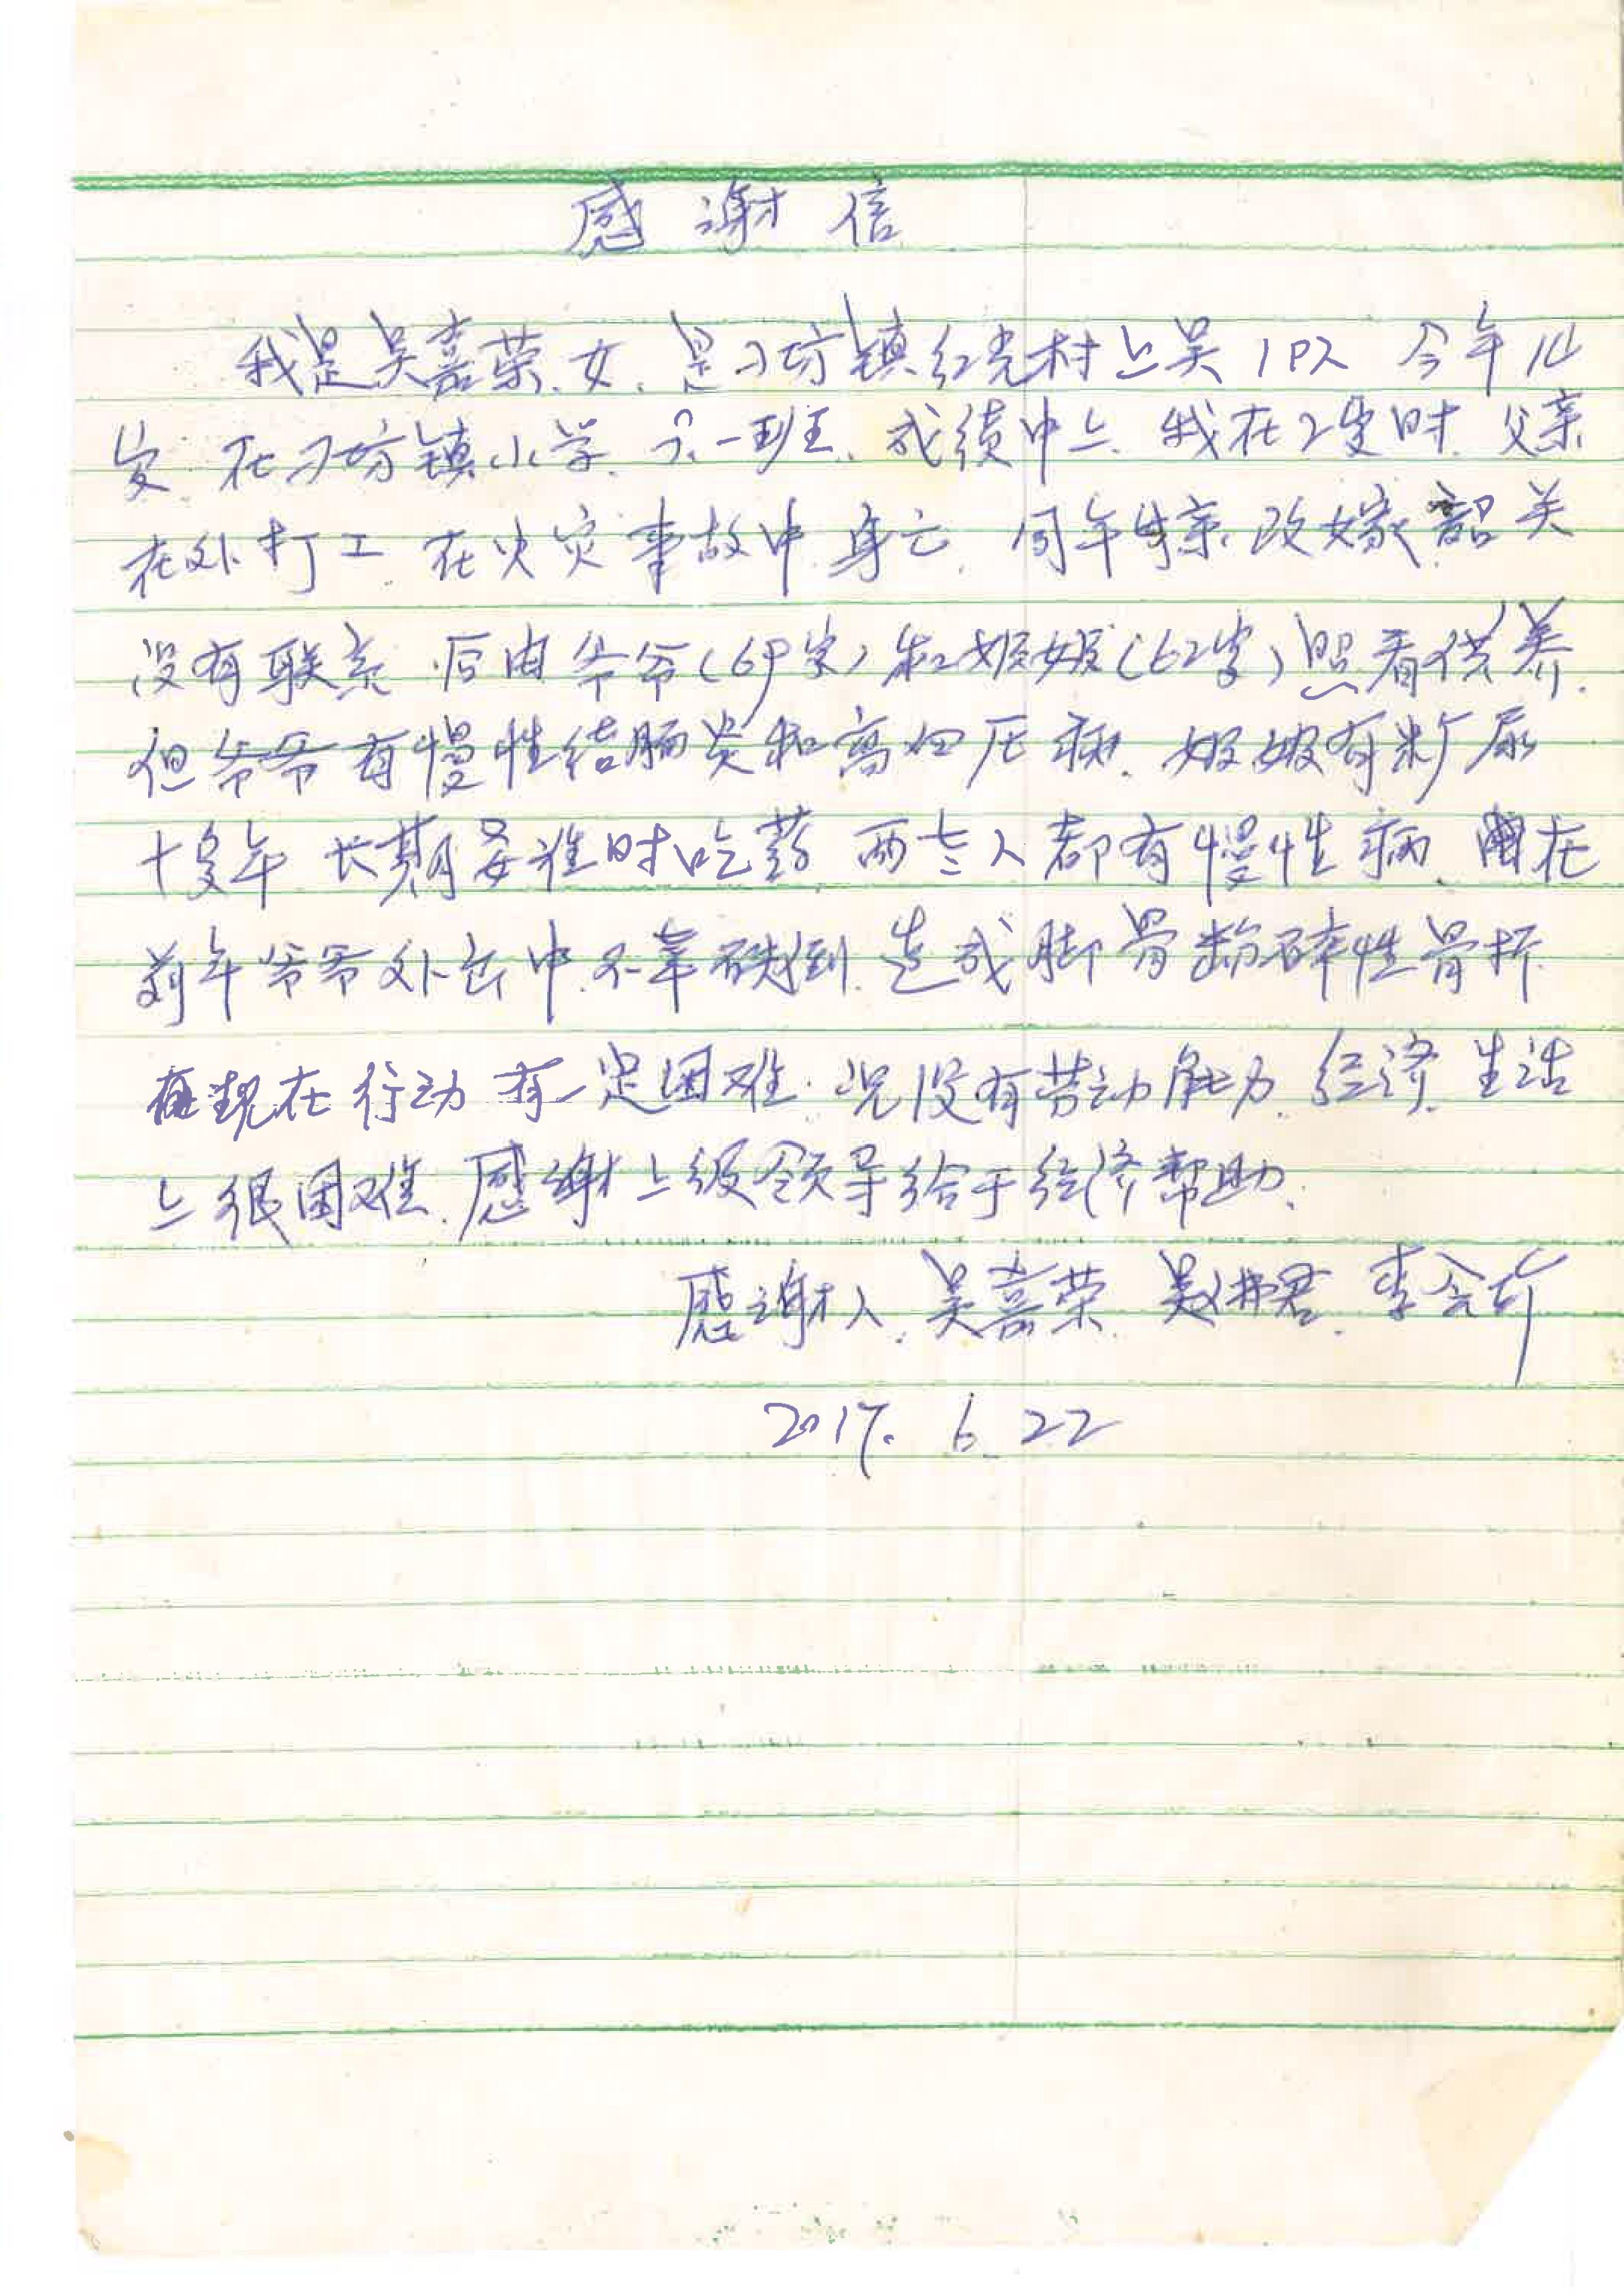 感谢信
我是吴嘉荣、女、是刁坊镇红光村上吴1队 今年14
岁 在刁坊镇小学、六一班、成绩中上、我在2岁时、父亲
在外打工 在火灾事故中身亡、同年母亲改嫁韶关
没有联系 后由爷爷(69岁)和婆婆(62岁)照看供养、
但爷爷有慢性结肠炎和高血压病、婆婆有糖尿
十多年 长期要准时吃药、两老人都有慢性病、在
前年爷爷外出中、不幸跌倒、造成脚骨粉碎性骨折
现在行动有一定困难、没有劳动能力、经济、生活
上很困难、感谢上级领导给于经济帮助、
感谢人、吴嘉荣、君、李
2017. 6. 22